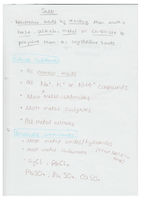 Salts
Neutralise acids by reacting them with a
base, alkali, metal or carbonate to
prepare them as crystalline solids
Soluble Substances
• All common acids
• All Na⁺, K⁺ or NH₄⁺ compounds
• Most metal chlorides
• Most metal sulfates
• All metal nitrates
Insoluble Substances
• Most metal oxides/hydroxides
• Most metal carbonates
AgCl, PbCl₂
PbSO₄, BaSO₄, CaSO₄